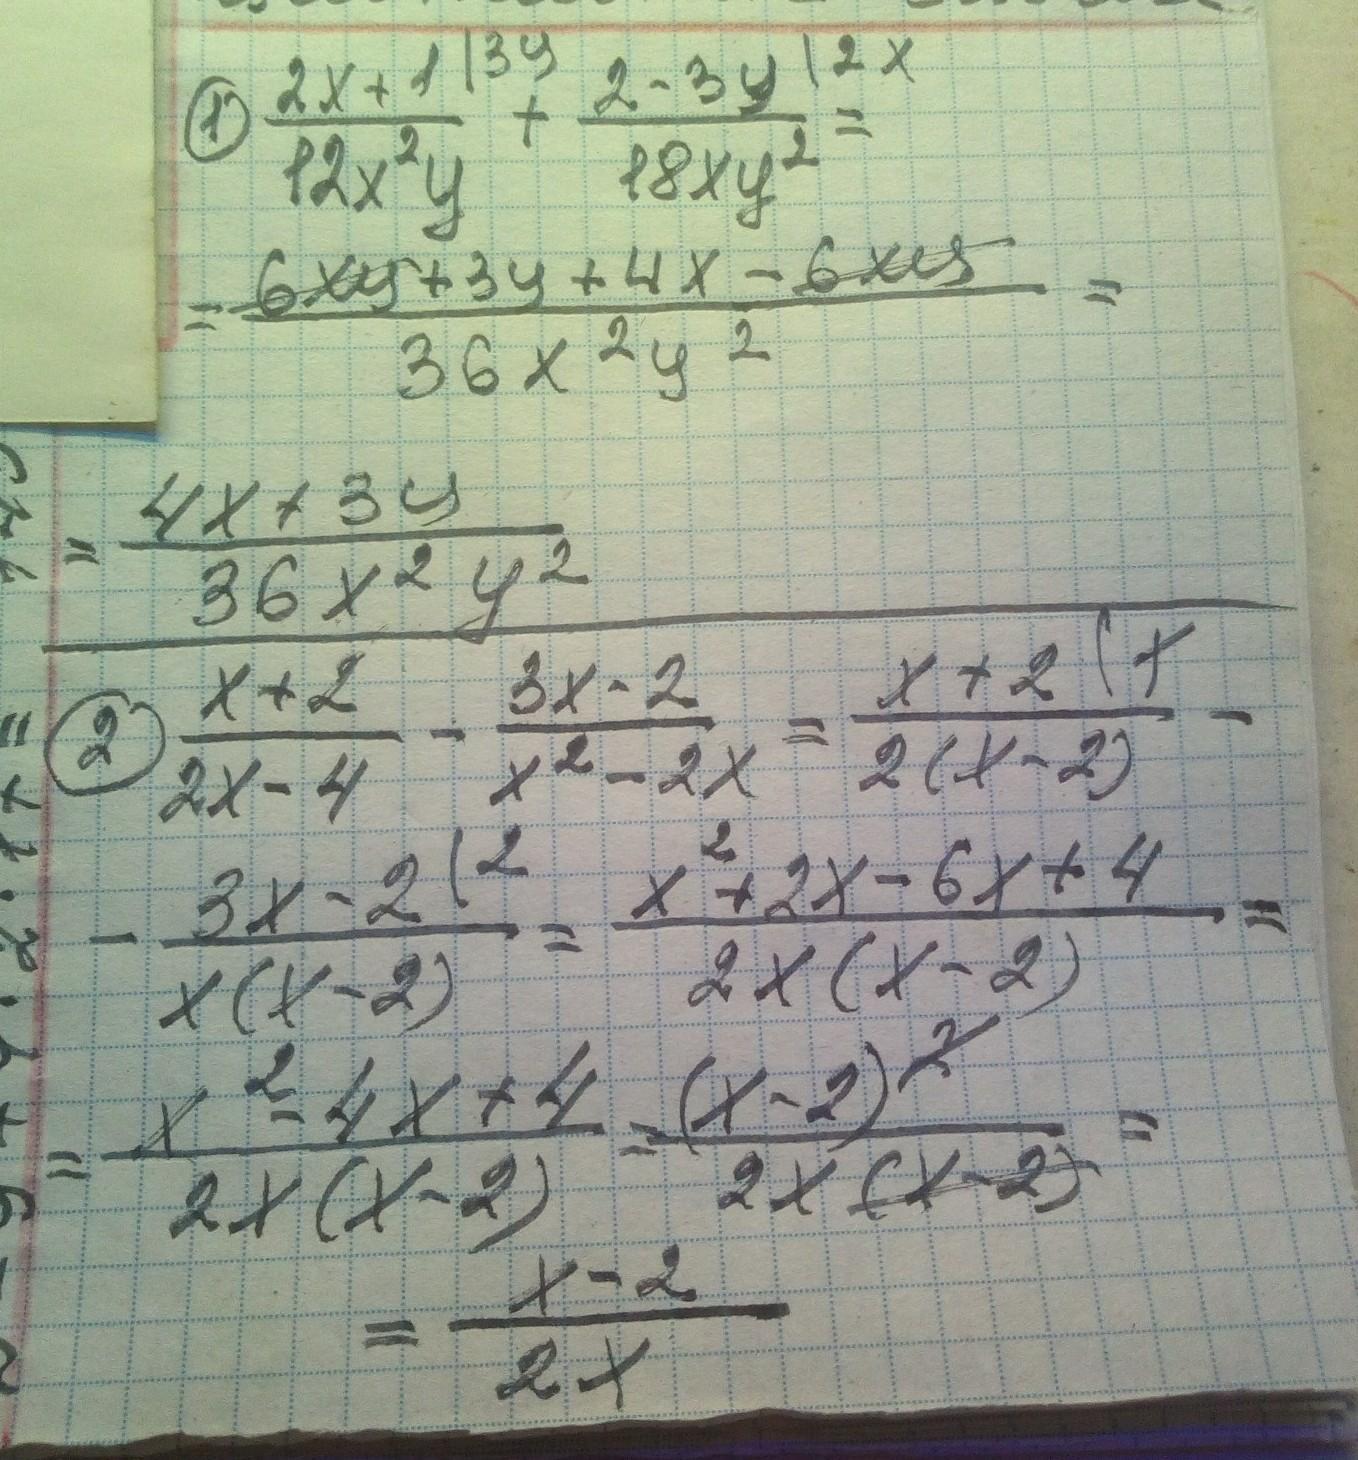 ① (2x+1)/(12x²y) |3y + (2-3y)/(18xy²) |2x =
= (6xy+3y+4x-6xy)/(36x²y²) =
= (4x+3y)/(36x²y²)
② (x+2)/(2x-4) - (3x-2)/(x²-2x) = (x+2)/(2(x-2)) (x -
- (3x-2)/(x(x-2)) (2 = (x²+2x-6x+4)/(2x(x-2)) =
= (x²-4x+4)/(2x(x-2)) = (x-2)²/(2x(x-2)) =
= (x-2)/(2x)